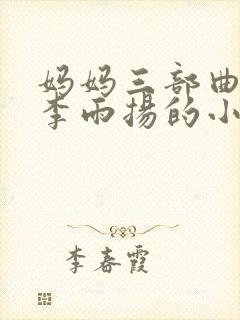 妈妈三部曲
李雨揚的小
李春霞